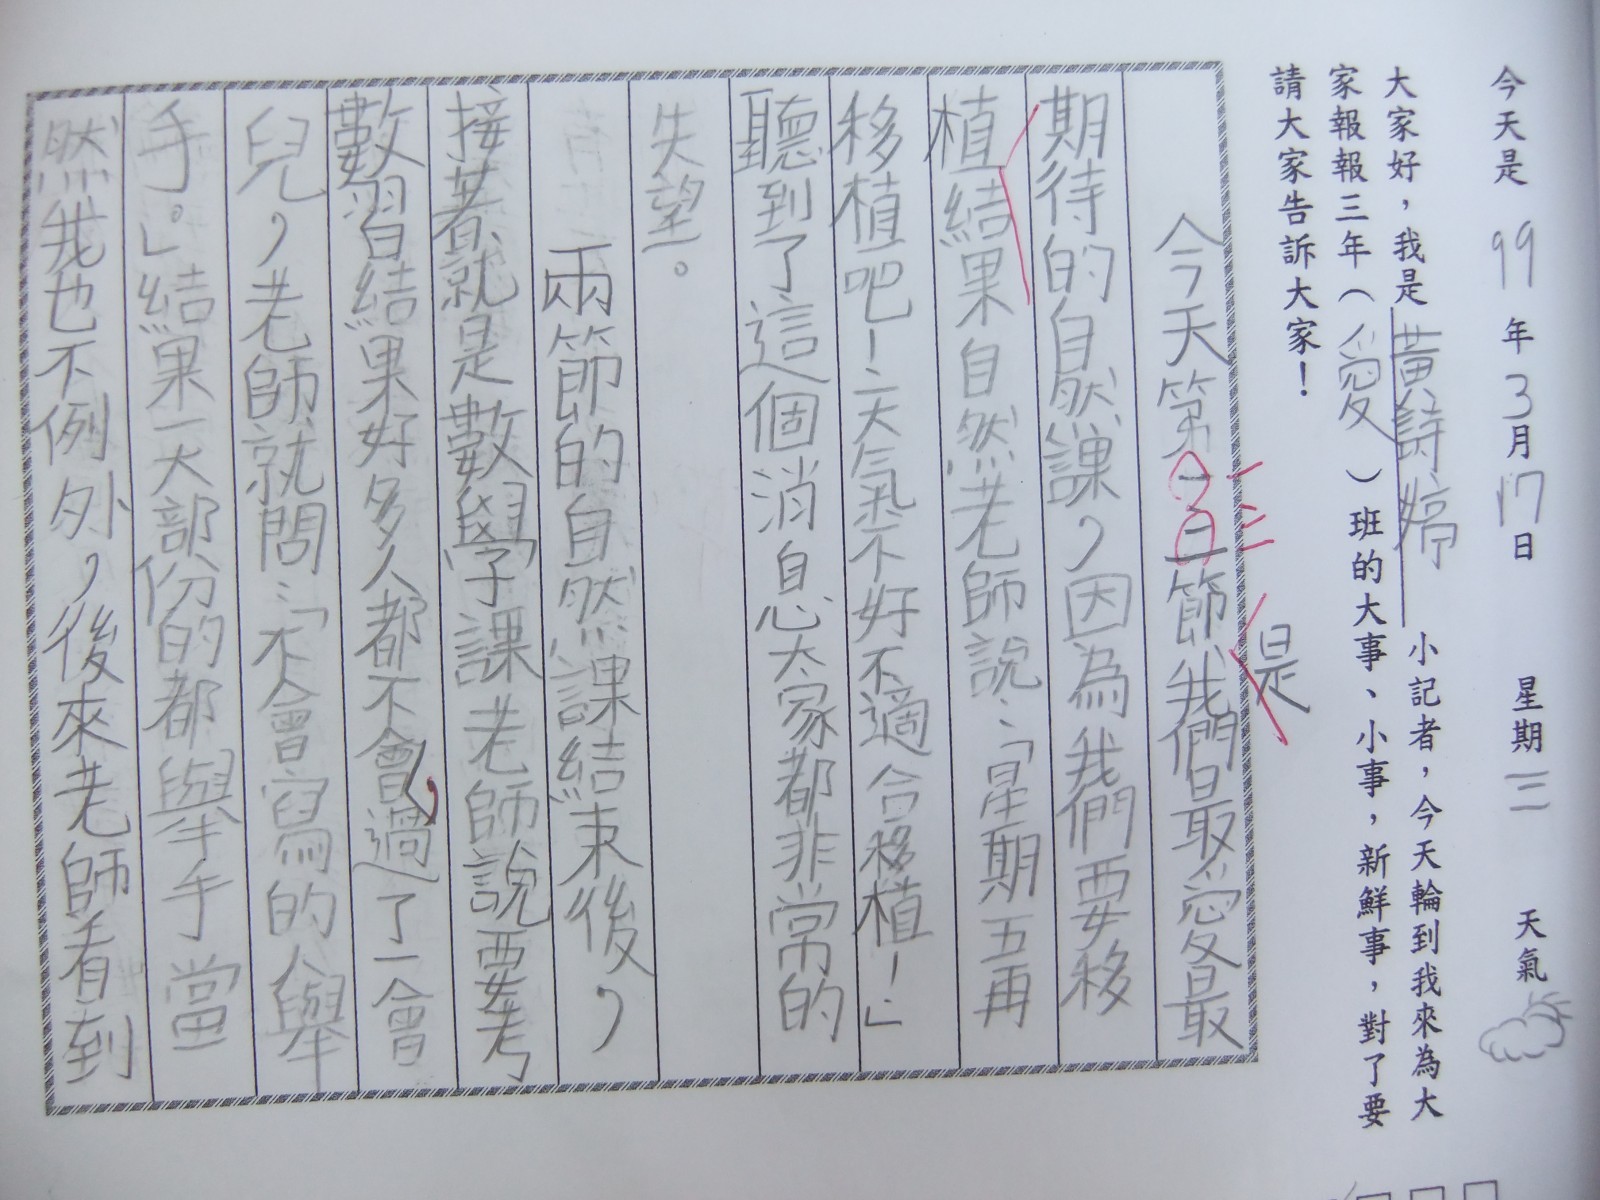 今天是 99 年 3 月 17 日 星期 三 天氣
大家好，我是 黃詩婷 小記者，今天輪到我來為大
家報報三年（愛）班的大事、小事，新鮮事，對了要
請大家告訴大家！
是
今天第二三節我們最愛最
期待的自然課，因為我們要移
植結果自然老師說：「星期五再
移植吧！天氣不好不適合移植！」
聽到了這個消息大家都非常的
失望。
兩節的自然課結束後，
接著就是數學課老師說要考
數習結果好多人都不會，過了一會
兒，老師就問：「不會寫的人舉
手。」結果一大部份的都舉手當
然我也不例外，後來老師看到